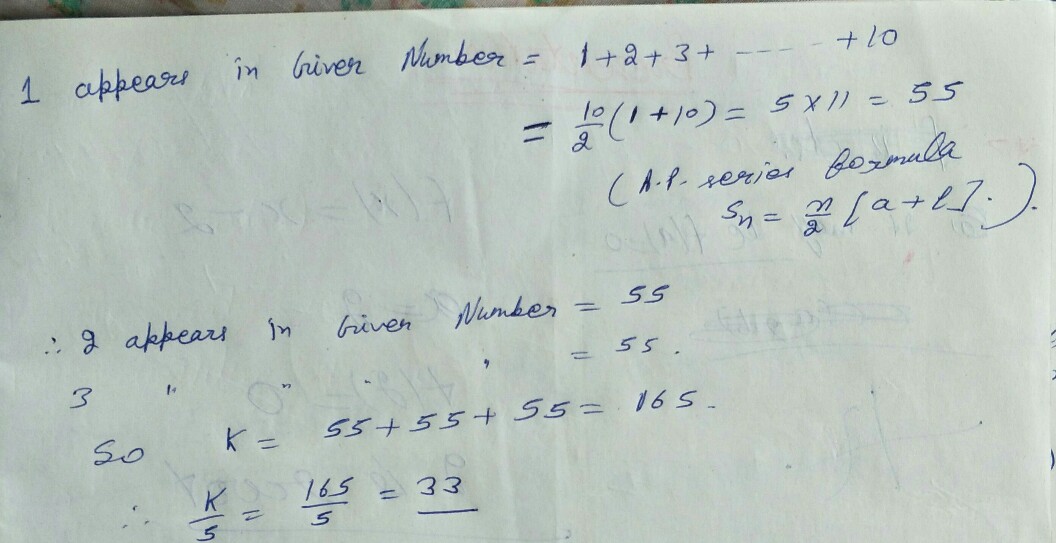 1 appears in Given Number = 1+2+3+ ---- - +10
= 10/2 (1+10) = 5×11 = 55
(A.P. series formula
Sn = n/2 [a+l].).
∴ 2 appears in Given Number = 55
3 " " " , = 55.
So K = 55+55+55 = 165.
∴ K/5 = 165/5 = 33